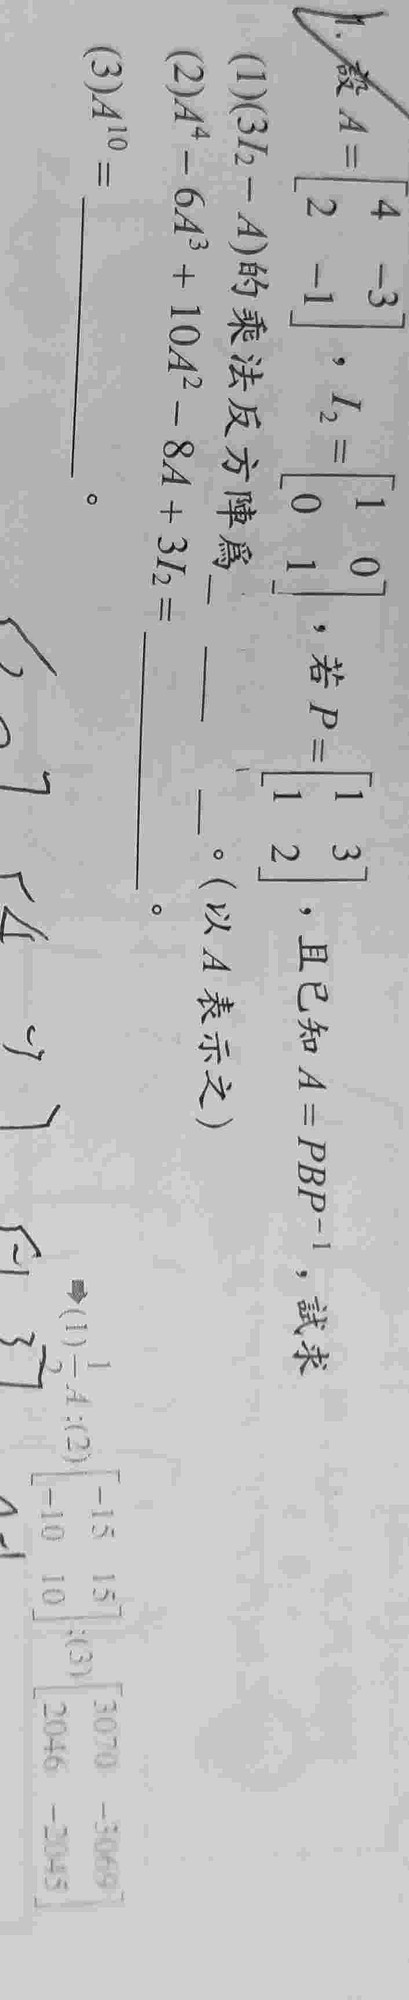 1. 設 A = [4 -3; 2 -1], I₂ = [1 0; 0 1], 若 P = [1 3; 1 2], 且已知 A = PBP⁻¹, 試求
(1)(3I₂ - A)的乘法反方陣為_ __ _。(以 A 表示之)
(2)A⁴ - 6A³ + 10A² - 8A + 3I₂ = ________。
(3)A¹⁰ = ________。
➡(1) 1/2 A;(2) [-15 15; -10 10];(3) [3070 -3069; 2046 -2045]